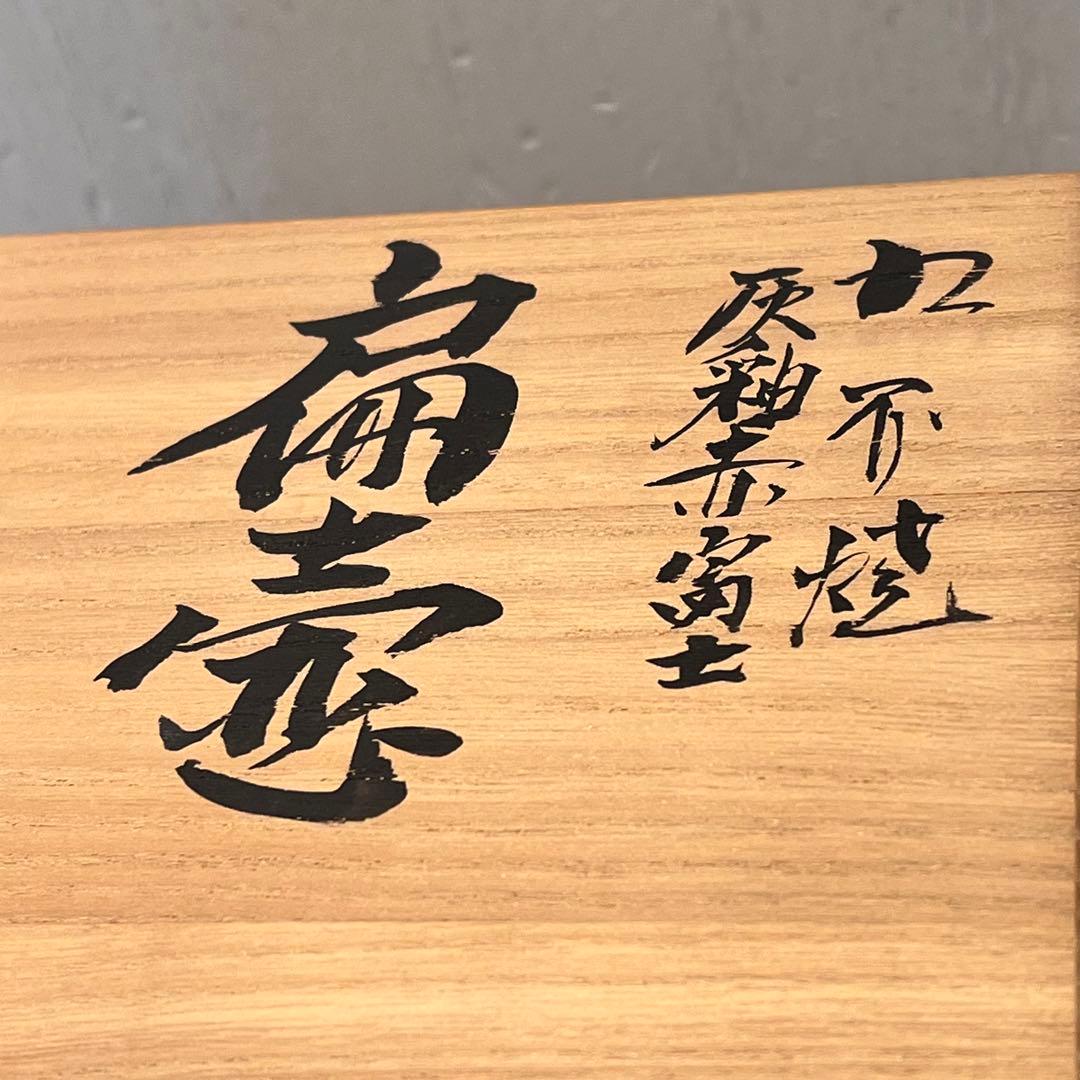 焼
灰釉赤富士
扁壺